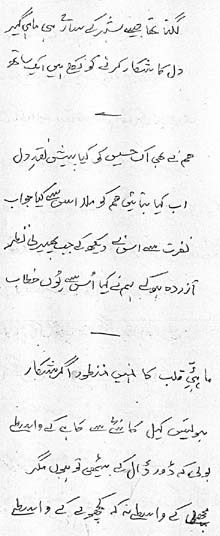 لگتا تھا جیسے شہر کے سارے ہی ماہی گیر
دل کا شکار کرنے کو نکلے ہیں ایک ساتھ
ہم نے بھی اک حسیں کو کیا پیش نقدِ دل
اب کیا بتائیں ہم کو ملا اس سے کیا جواب
نفرت سے اس نے دیکھ کے جب پھیر لی نظر
آزردہ ہو کے ہم نے کیا اُس سے یوں خطاب
ماہیِٔ قلب کا نہیں منظور اگر شکار
کے واسطے
بولی کہ ڈور ڈال کے بیٹھی تو ہوں مگر
مچھلی کے واسطے نہ کہ کچھوے کے واسطے